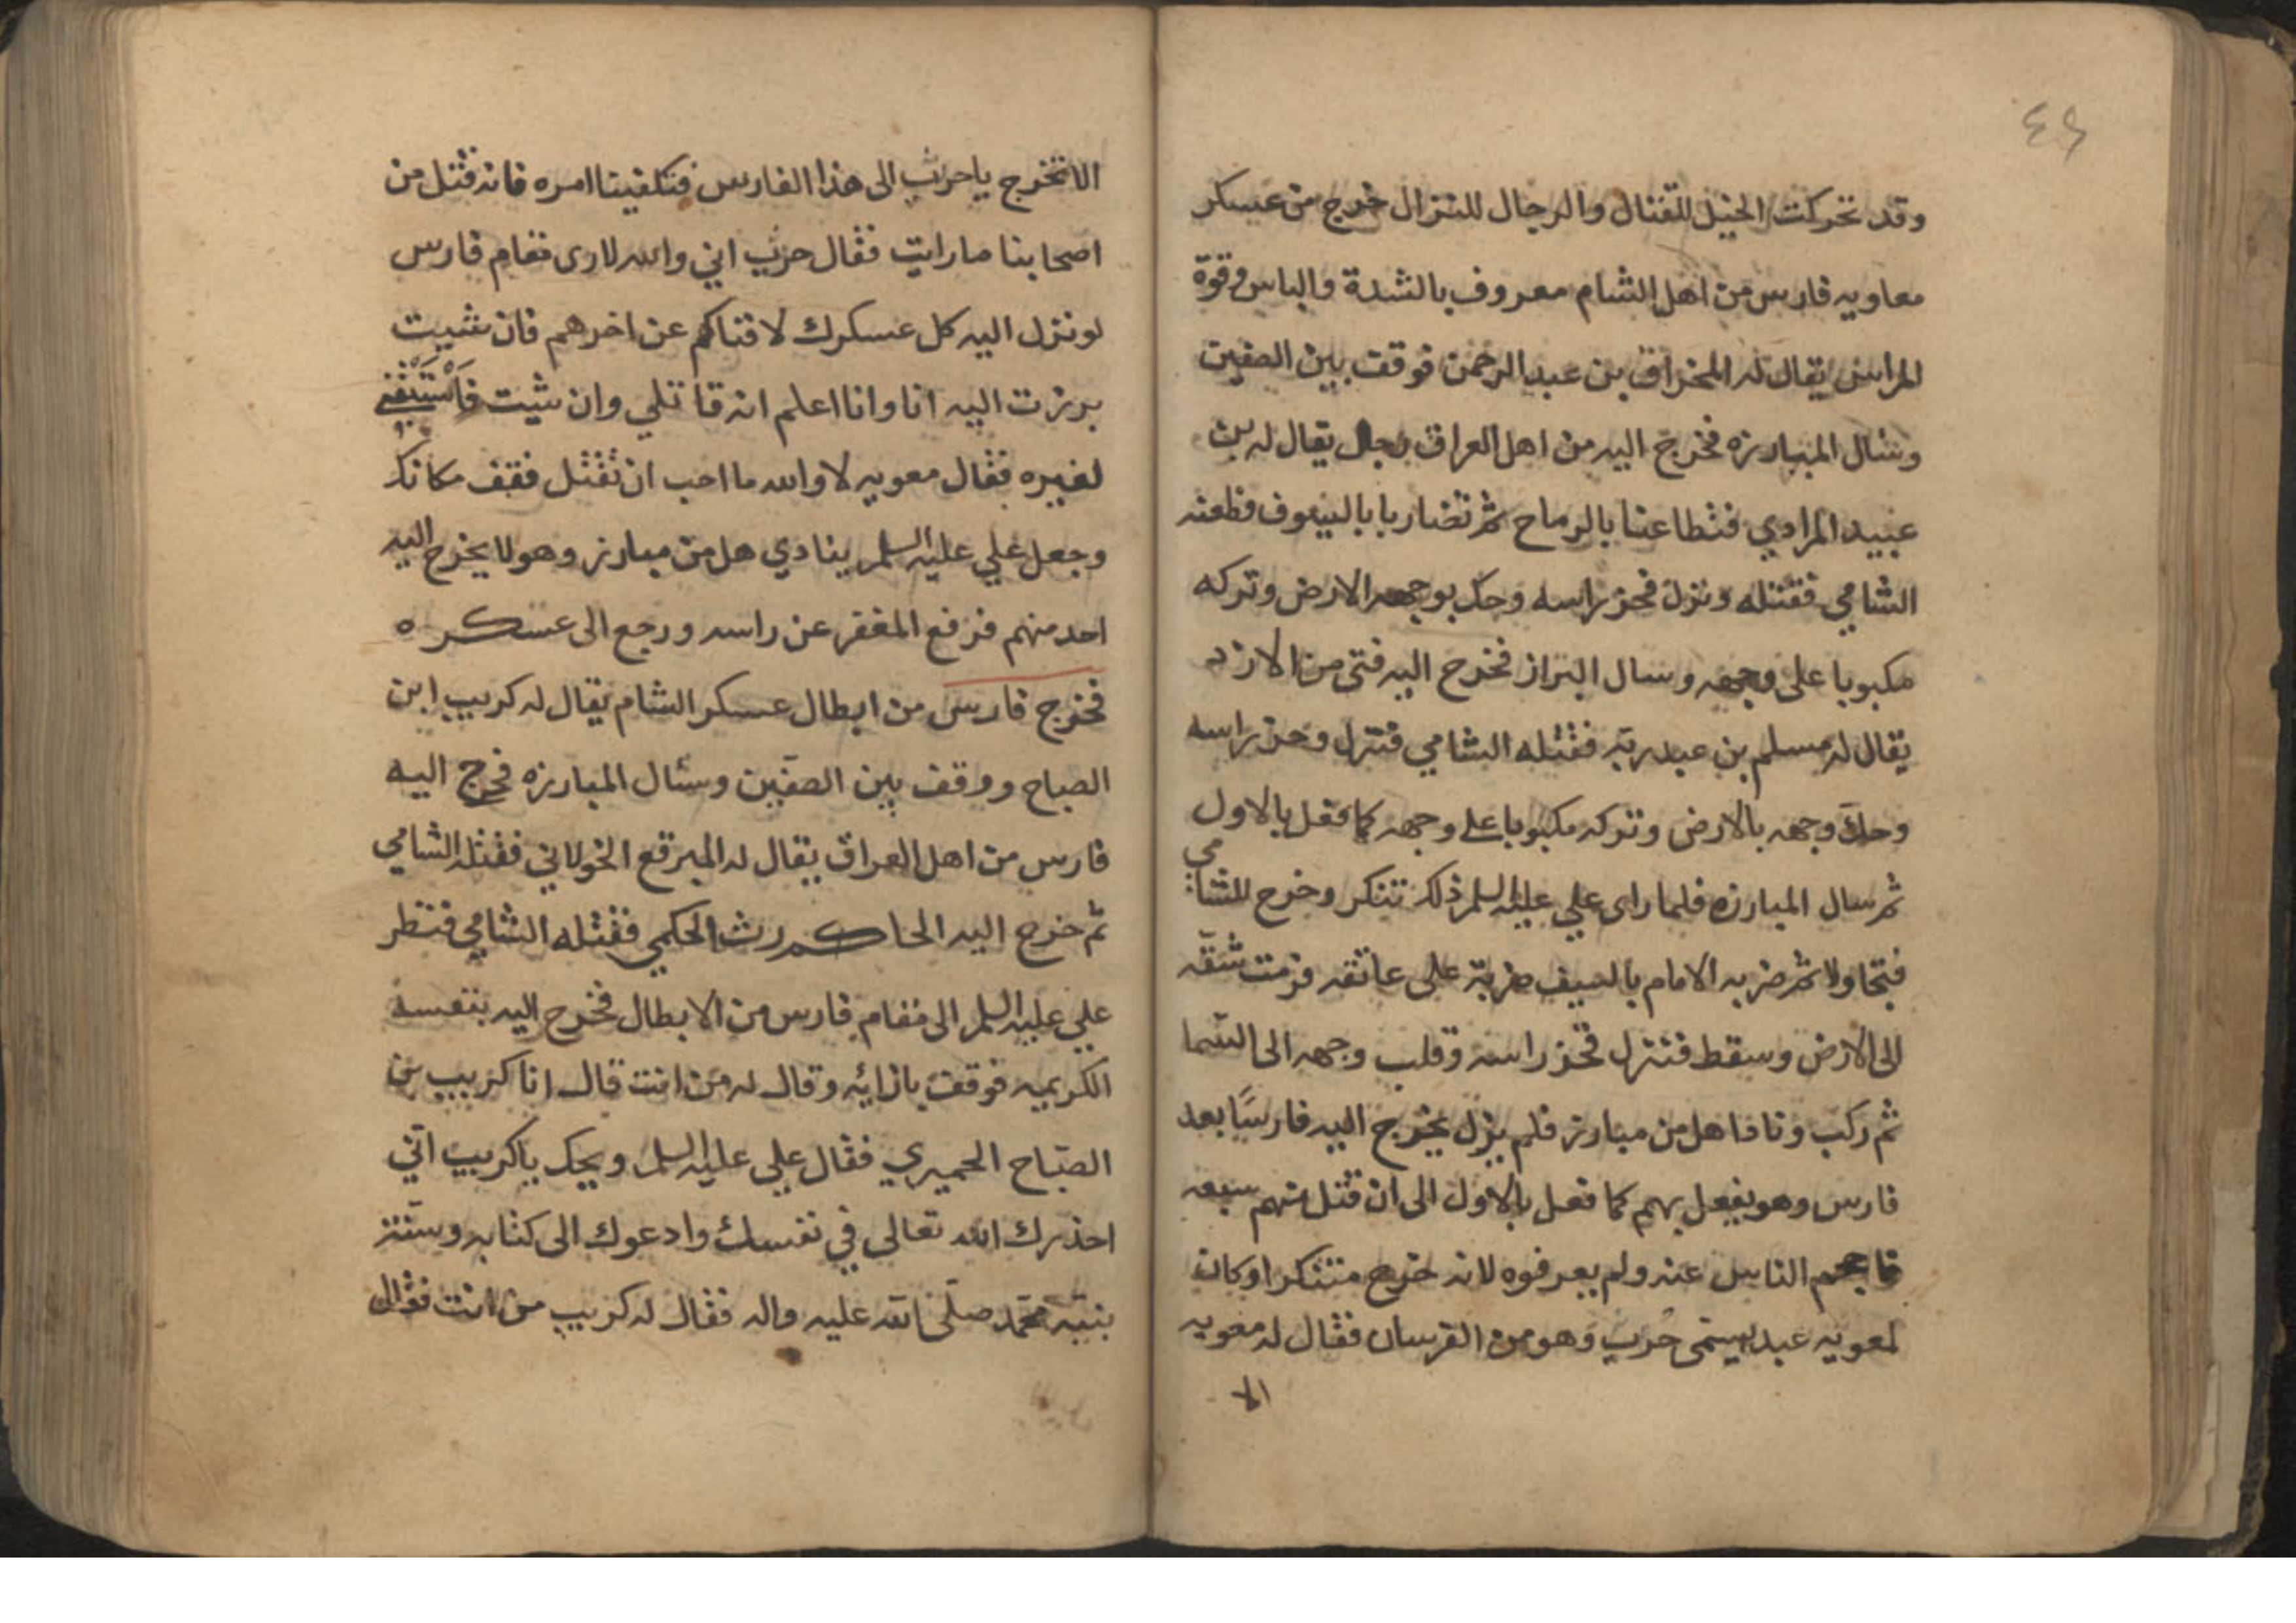 ٤٩
وقد تحركت الخيل للقتال والرجال للنزال خرج من عسكر
معاويه فارس من اهل الشام معروف بالشدة والباس وقوة
المراس يقال له المخراق بن عبد الرحمن فوقف بين الصفين
وسئال المبارزه فخرج اليه من اهل العراق رجل يقال له بن
عبيد المرادي فتطاعنا بالرماح ثم تضاربا بالسيوف فطعنه
الشامي فقتله ونزل فحز راسه وحك بوجهه الارض وتركه
مكبوبا على وجهه وسال البراز فخرج اليه فتى من الازد
يقال له مسلم بن عبد ربه فقتله الشامي فنزل وحز راسه
وحك وجهه بالارض وتركه مكبوبا على وجهه كما فعل بالاول
ثم سال المبارزه فلما راى علي عليه السلم ذلك تنكر وخرج للشامي
فتجاولا ثم ضربه الامام بالسيف ضربة على عاتقه فرمت شقه
الى الارض وسقط فنزل فحز راسه وقلب وجهه الى السما
ثم ركب ونادا هل من مبارز فلم يزل يخرج اليه فارسًا بعد
فارس وهو يفعل بهم كما فعل بالاول الى ان قتل منهم سبعه
فاحجم الناس عنه ولم يعرفوه لانه خرج متنكرا وكان
لمعويه عبد يسمى حرب وهو من الفرسان فقال له معويه
الا
الا تخرج ياحرب الى هذا الفارس فتكفينا امره فانه قتل من
اصحابنا ما رايت فقال حرب اني والله لارى مقام فارس
لو نزل اليه كل عسكرك لافناكم عن اخرهم فان شيت
برزت اليه انا وانا اعلم انه قاتلي وان شيت فاستبقني
لغيره فقال معويه لا والله ما احب ان تقتل فقف مكانك
وجعل علي عليه السلم ينادي هل من مبارز وهو لا يخرج اليه
احد منهم فرفع المغفر عن راسه ورجع الى عسكره
فخرج فارس من ابطال عسكر الشام يقال له كريب ابن
الصباح ووقف بين الصفين وسئال المبارزه فخرج اليه
فارس من اهل العراق يقال له المبرقع الخولاني فقتله الشامي
ثم خرج اليه الحا رث الحكمي فقتله الشامي فنظر
علي عليه السلم الى مقام فارس من الابطال فخرج اليه بنفسه
الكريمه فوقف بازائه وقال له من انت قال انا كريب بن
الصباح الحميري فقال علي عليه السلم ويحك ياكريب اني
احذرك الله تعالى في نفسك وادعوك الى كتابه وسنة
نبيه محمد صلى الله عليه واله فقال له كريب من انت فقال